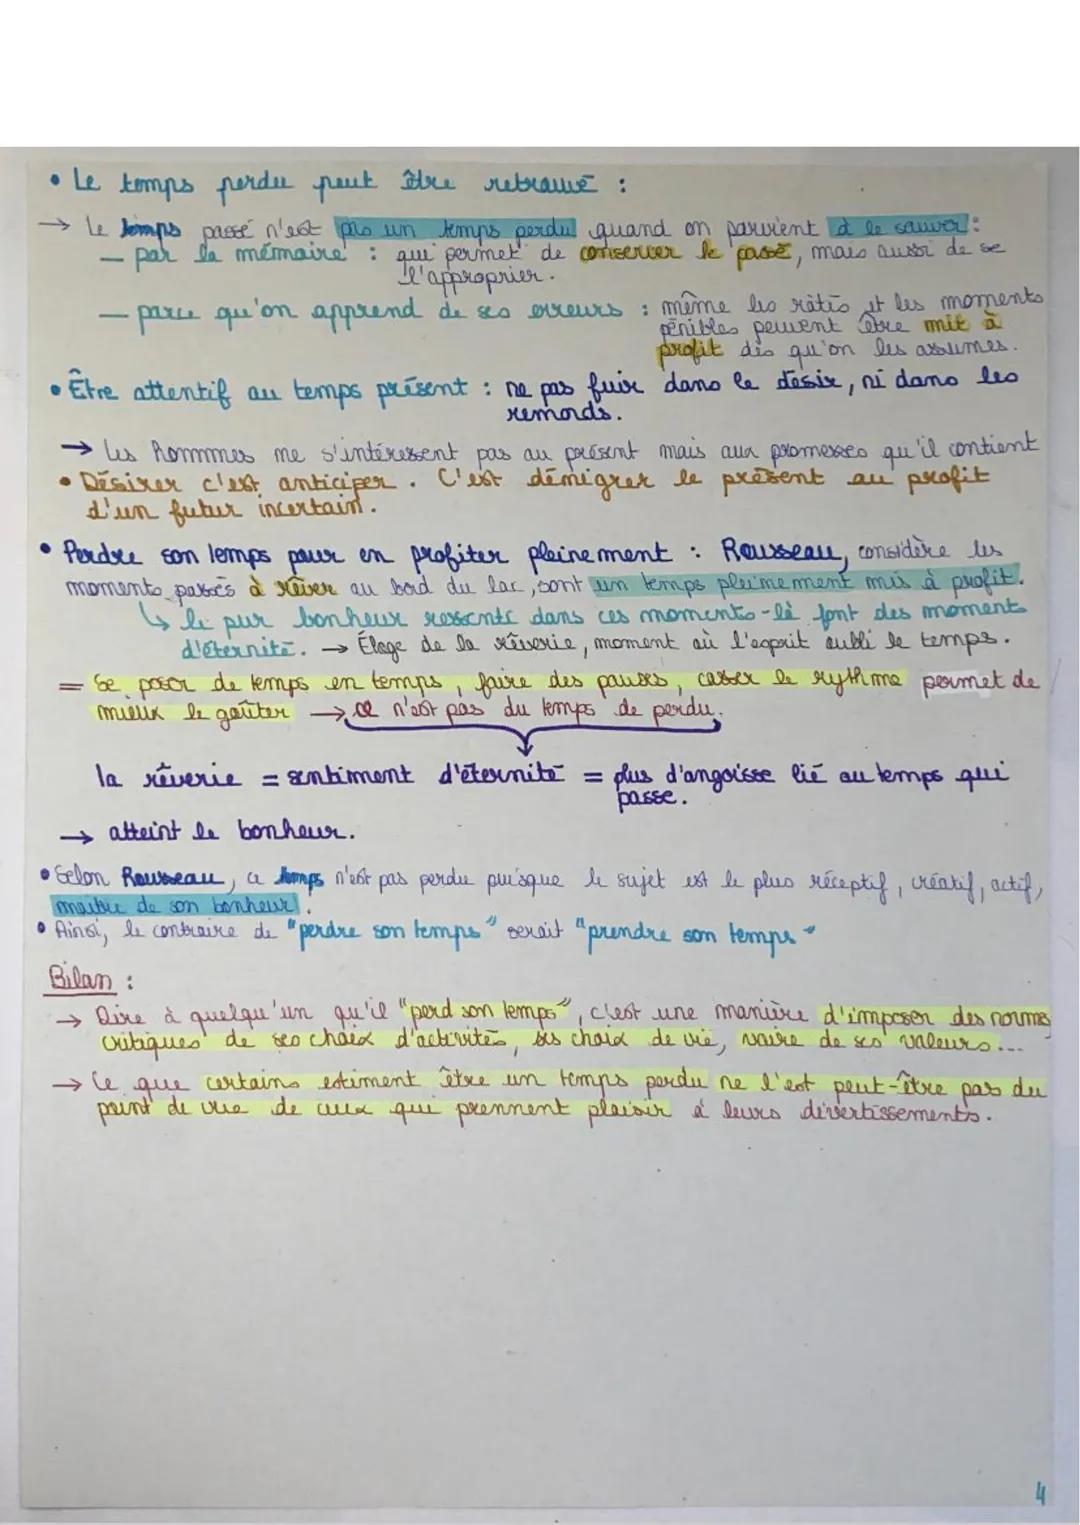 • Le temps perdu peut être retrouvé :
→ Le temps passé n'est pas un temps perdu quand on parvient à le sauver :
— par la mémoire : qui permet de conserver le passé, mais aussi de se
l'approprier.
— parce qu'on apprend de ses erreurs : même les râtés et les moments
pénibles peuvent être mit à
profit dès qu'on les assumes.
• Être attentif au temps présent : ne pas fuir dans le désir, ni dans les
remords.
→ Les hommmes me s'intéressent pas au présent mais aux promesses qu'il contient
• Désirer c'est anticiper. C'est démigrer le présent au profit
d'un futur incertain.
• Perdre son temps pour en profiter pleinement : Rousseau, considère les
moments passés à rêver au bord du lac, sont un temps pleinement mis à profit.
↳ le pur bonheur ressenti dans ces moments-là font des moments
d'éternité. → Éloge de la rêverie, moment où l'esprit oubli le temps.
= Se poser de temps en temps, faire des pauses, casser le rythme permet de
mieux le goûter → ce n'est pas du temps de perdu.
la rêverie = sentiment d'éternité = plus d'angoisse lié au temps qui
passe.
→ atteint le bonheur.
• Selon Rousseau, ce temps n'est pas perdu puisque le sujet est le plus réceptif, créatif, actif,
maître de son bonheur.
• Ainsi, le contraire de "perdre son temps" serait "prendre son temps"
Bilan :
→ Dire à quelqu'un qu'il "perd son temps", c'est une manière d'imposer des normes
critiques de ses choix d'activités, ses choix de vie, voire de ses valeurs...
→ Ce que certains estiment être un temps perdu ne l'est peut-être pas du
point de vue de ceux qui prennent plaisir à leurs divertissements.
4